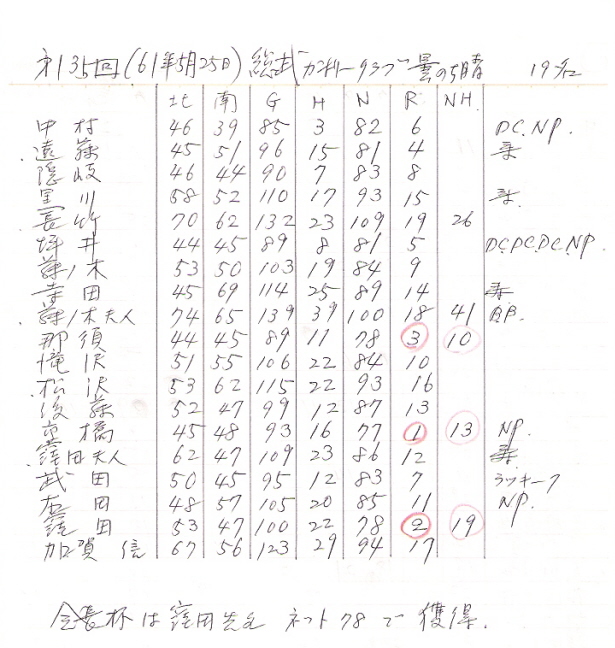 第135回(61年5月25日) 総武カントリークラブ 曇のち晴 19名
北 南 G H N R NH
中村 46 39 85 3 82 6 D.C. N.P.
遠藤 45 51 96 15 81 4
隠岐 46 44 90 7 83 8
黒川 58 52 110 17 93 15
長竹 70 62 132 23 109 19 26
坪井 44 45 89 8 81 5 D.C. D.C. D.C. N.P.
鈴ノ木 53 50 103 19 84 9
寺田 45 69 114 25 89 14
鈴ノ木夫人 74 65 139 39 100 18 41 B.B.
那須 44 45 89 11 78 3 10
滝沢 51 55 106 22 84 10
松沢 53 62 115 22 93 16
後藤 52 47 99 12 87 13
高橋 45 48 93 16 77 1 13 N.P.
窪田夫人 62 47 109 23 86 12
武田 50 45 95 12 83 7 ラッキー7
右田 48 57 105 20 85 11 N.P.
窪田 53 47 100 22 78 2 19
加賀 信 67 56 123 29 94 17
会長杯は窪田先生 ネット78で獲得.